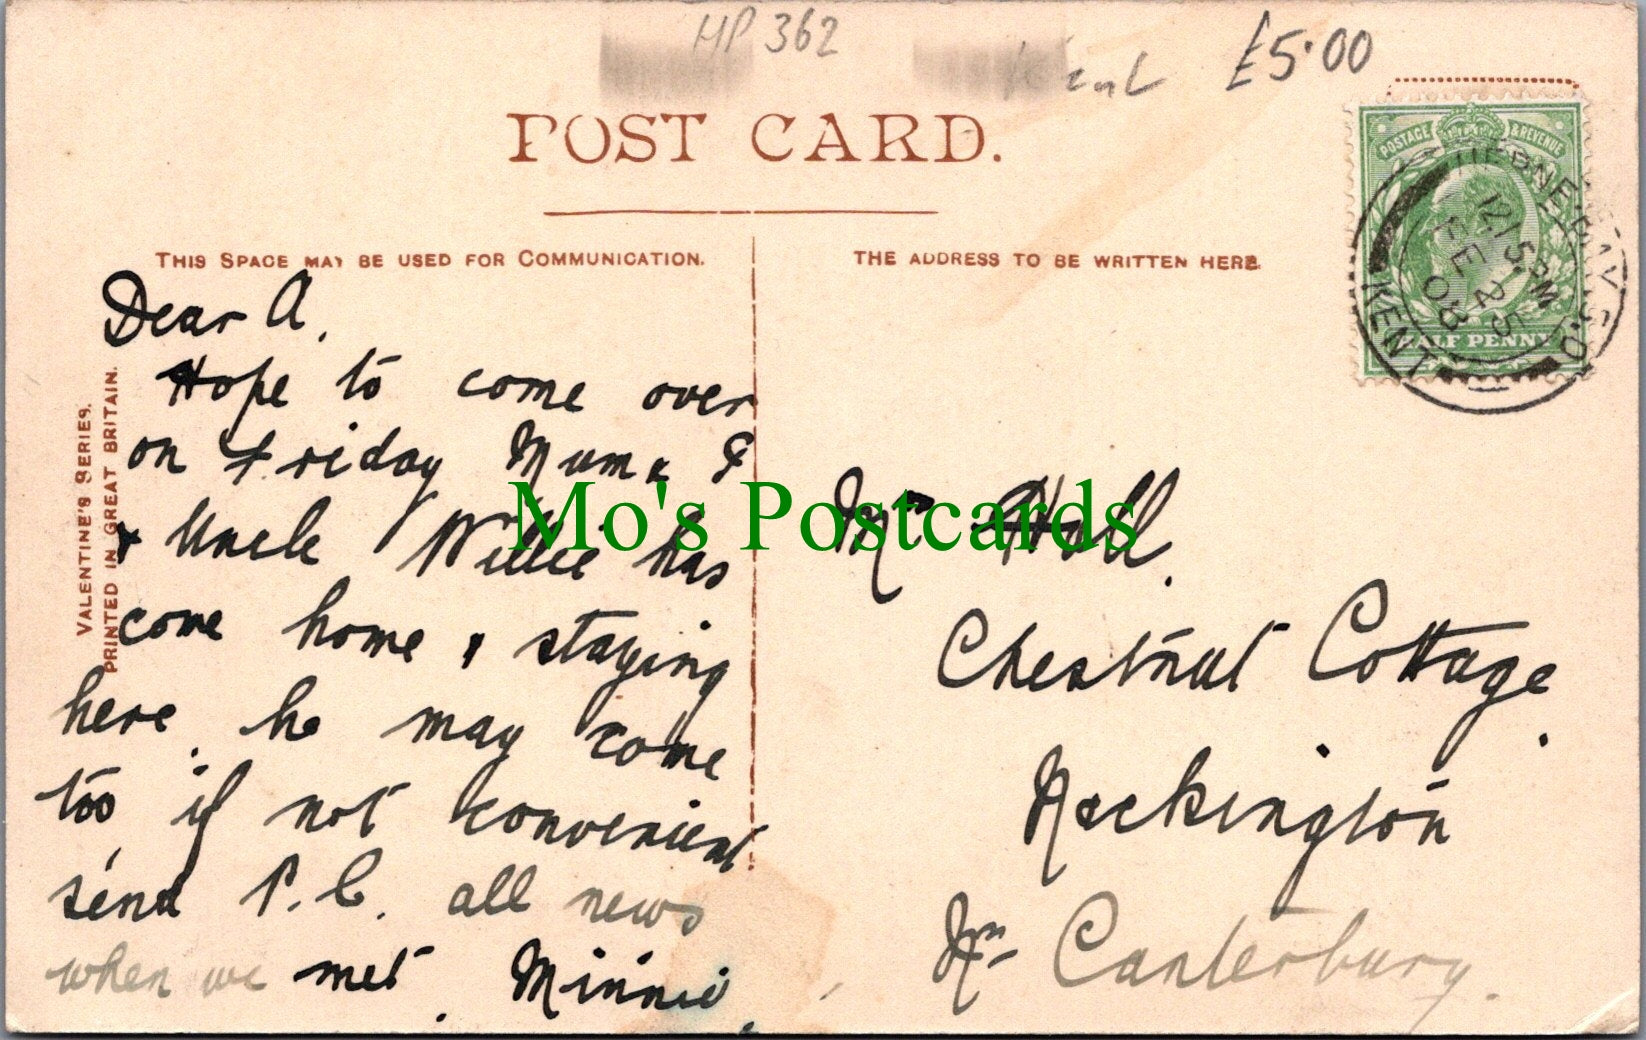 HP 362
Kent £5.00
POST CARD.
THIS SPACE MAY BE USED FOR COMMUNICATION.
THE ADDRESS TO BE WRITTEN HERE.
POSTAGE & REVENUE
HALF PENNY
HERNE BAY S.O.
12.15 PM
FE 25
08
KENT
VALENTINE'S SERIES.
PRINTED IN GREAT BRITAIN.
Dear A.
Hope to come over
on Friday Mum &
& Uncle Willie has
come home & staying
here. he may come
too, if not convenient
send P.C. all news
when we met. Minnie.
Mrs Holl.
Chestnut Cottage.
Nackington
Nr Canterbury.
Mo's Postcards